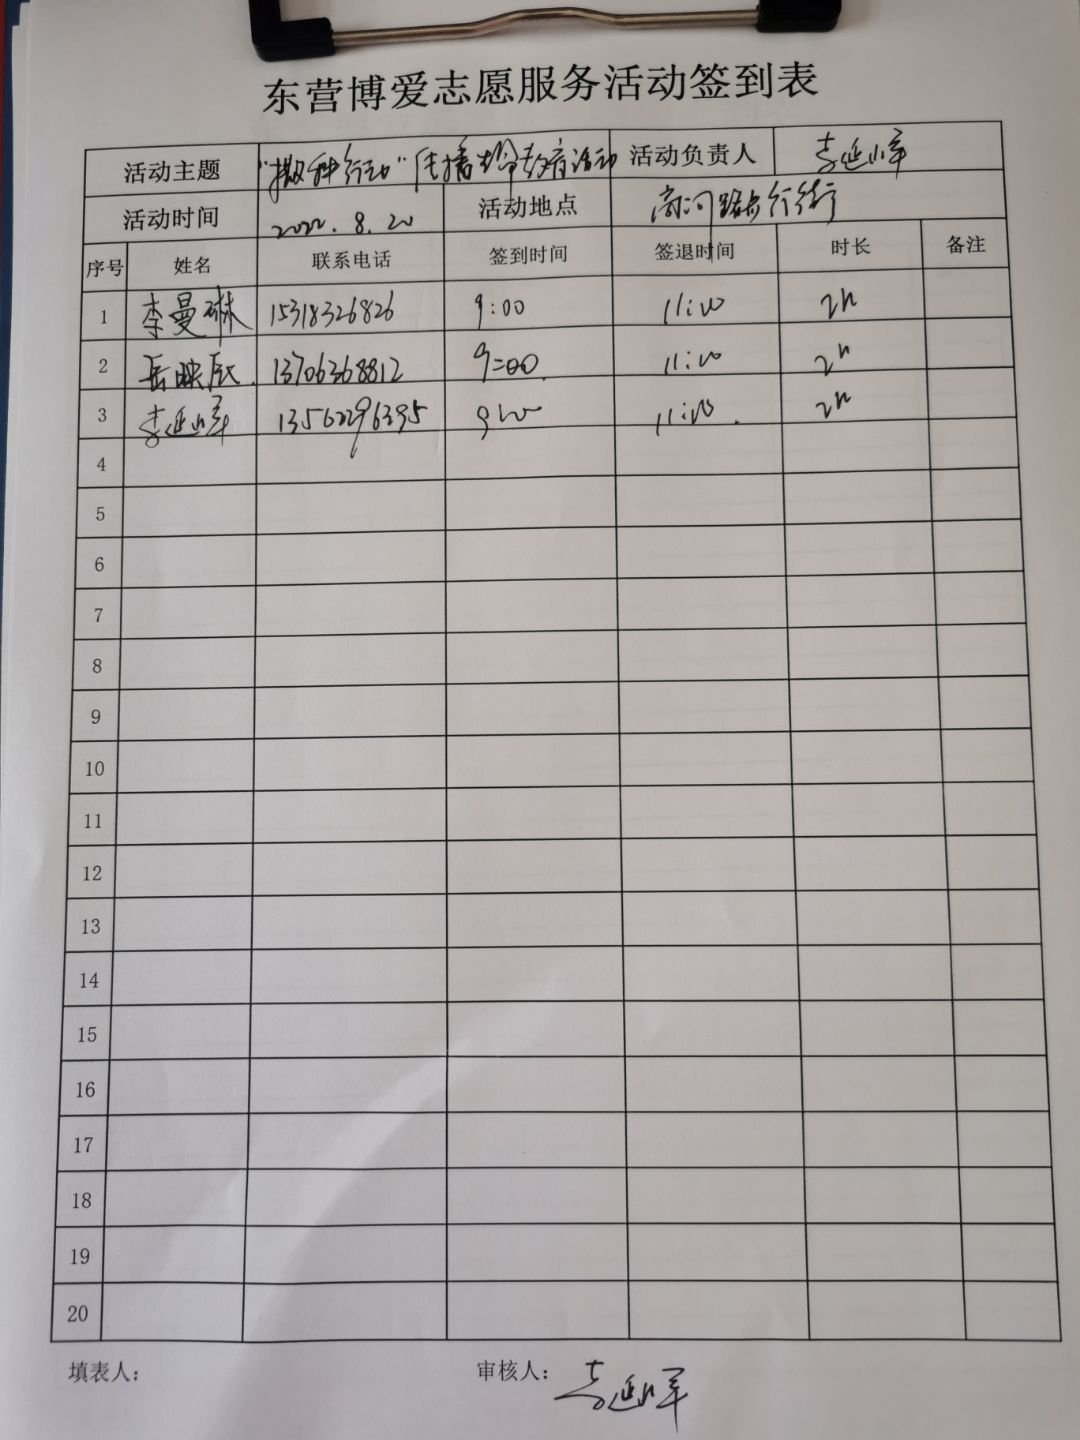 东营博爱志愿服务活动签到表
活动主题 "撒种行动" 传播 教育活动 活动负责人 李延军
活动时间 2022.8.20 活动地点 商河路步行街
序号 姓名 联系电话 签到时间 签退时间 时长 备注
1 李曼琳 15318326826 9:00 11:00 2h
2 岳映辰 13706368812 9:00 11:00 2h
3 李延军 13562296395 9:00 11:00 2h
4
5
6
7
8
9
10
11
12
13
14
15
16
17
18
19
20
填表人: 审核人: 李延军